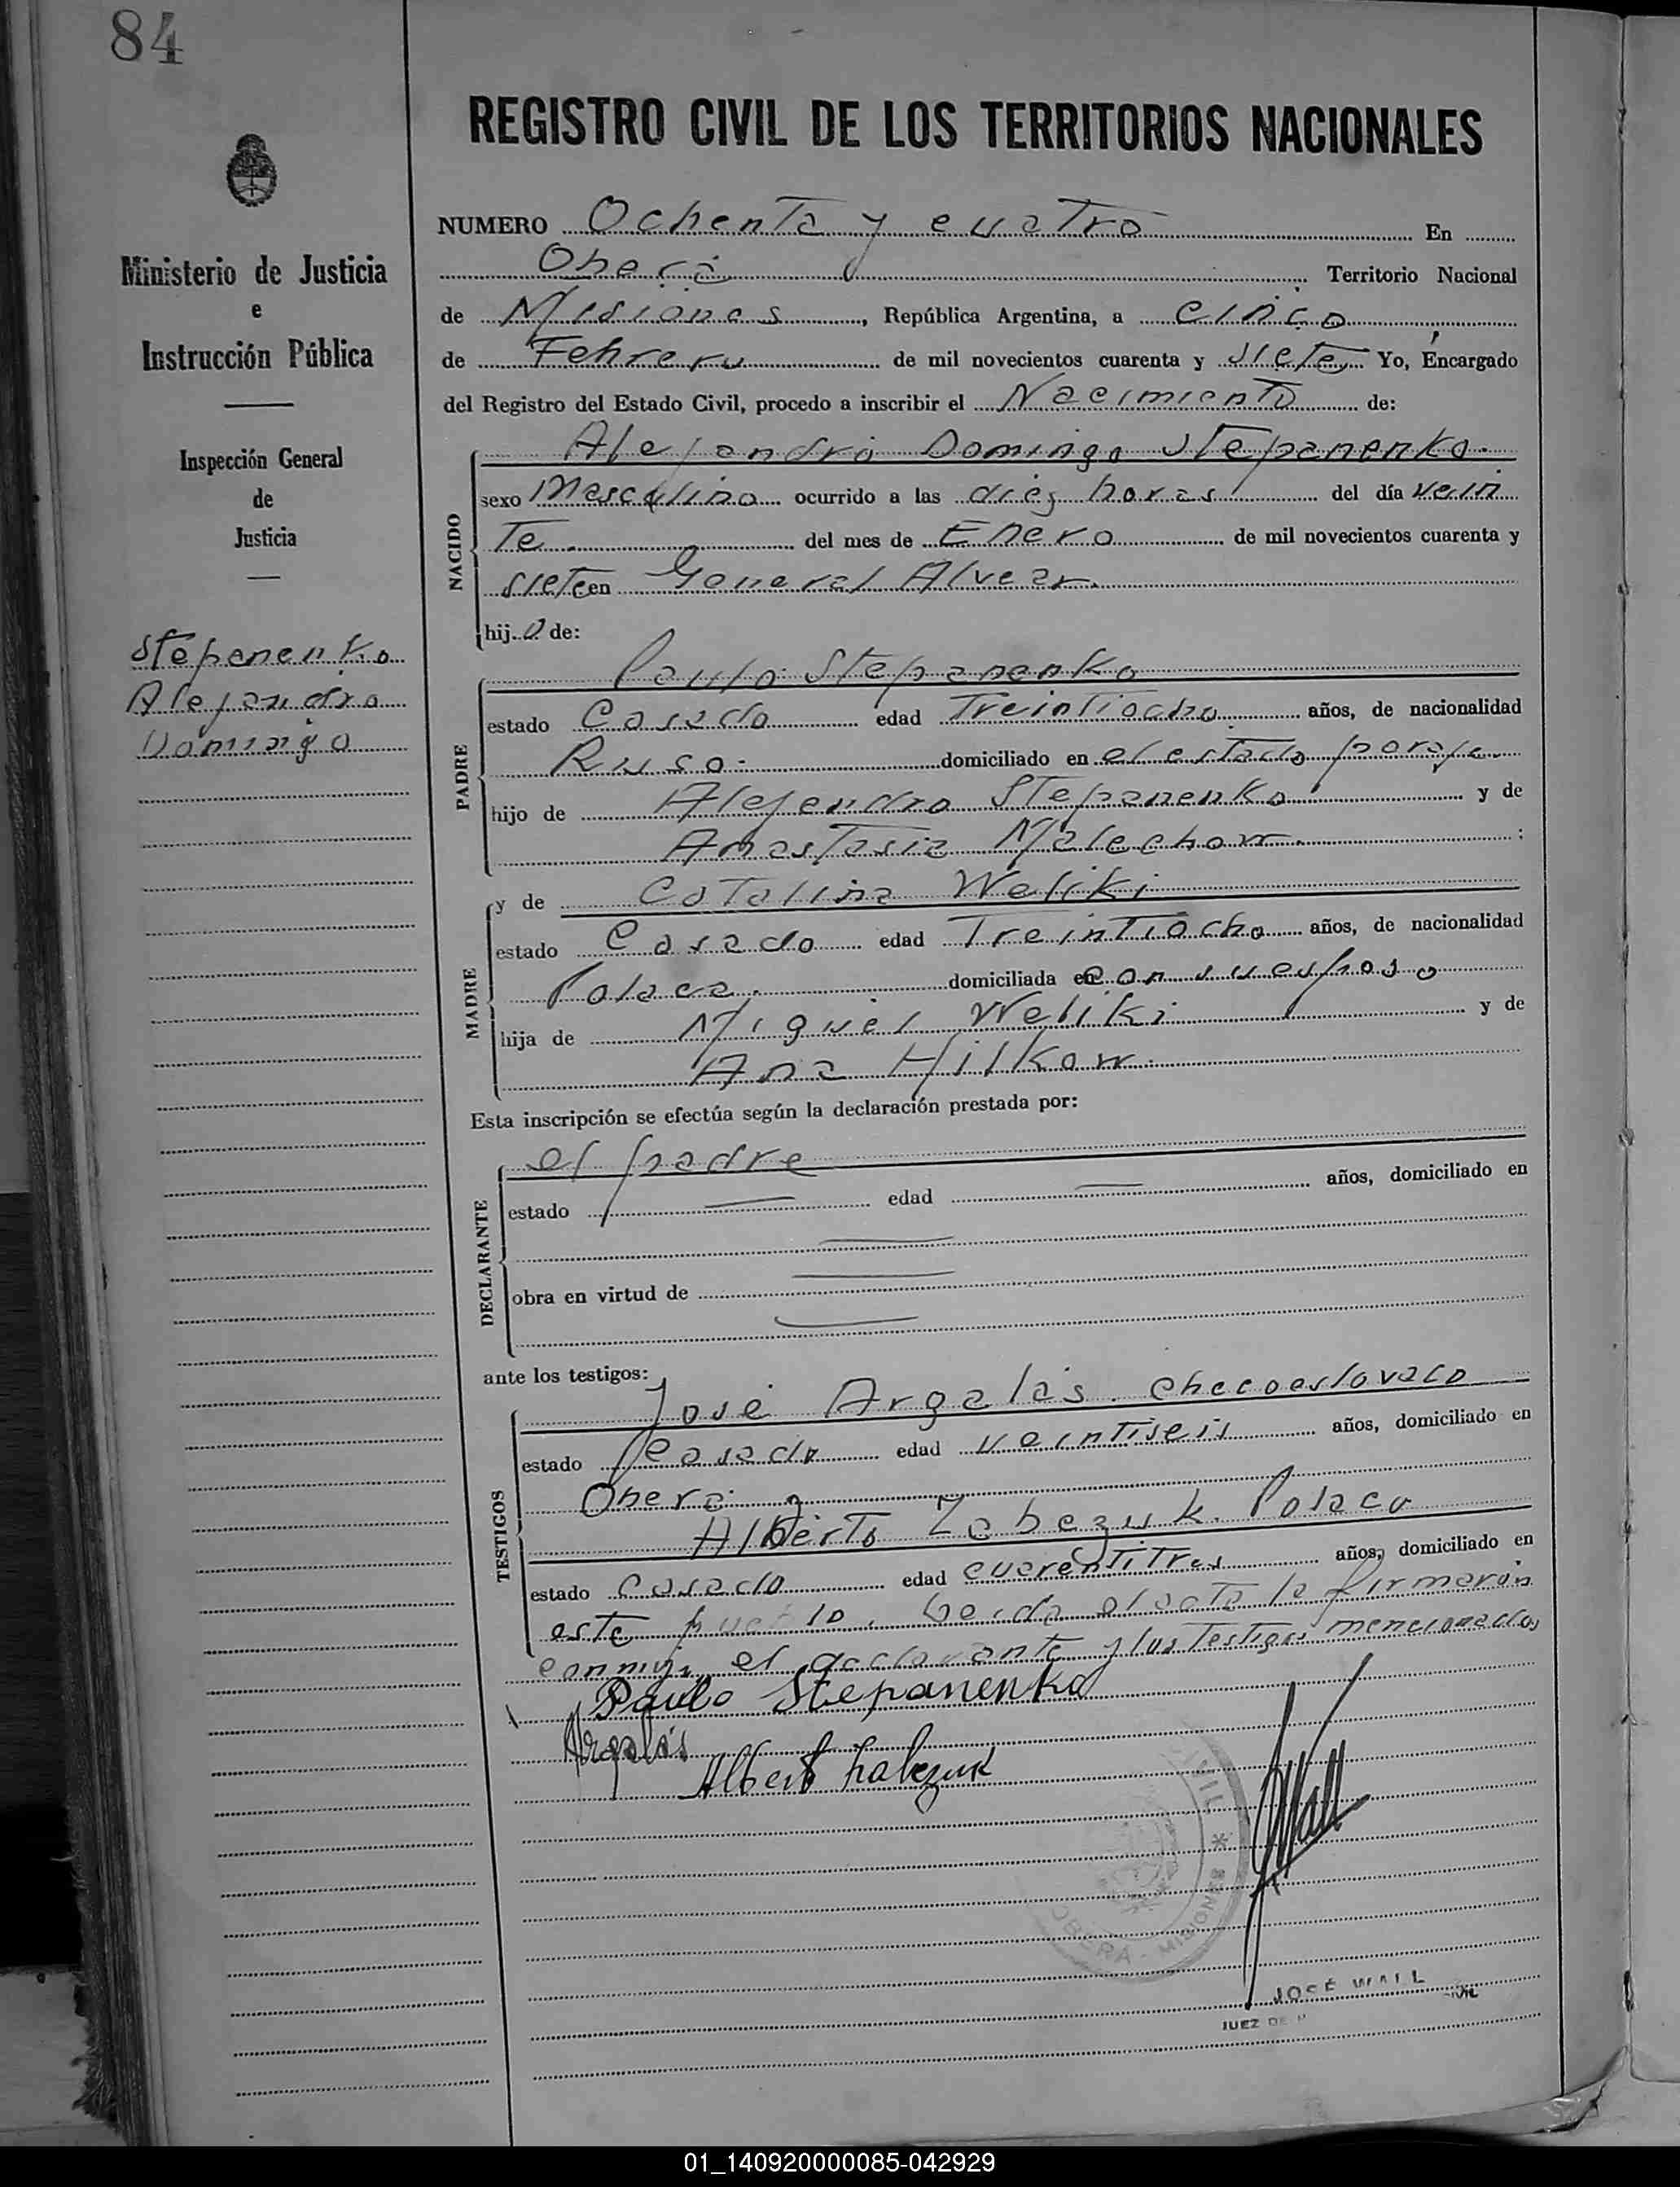 84
REGISTRO CIVIL DE LOS TERRITORIOS NACIONALES
Ministerio de Justicia
e
Instrucción Pública
Inspección General
de
Justicia
Stepanenko
Alejandro
Domingo
NUMERO Ochenta y cuatro En
Oberá Territorio Nacional
de Misiones, República Argentina, a cinco
de Febrero de mil novecientos cuarenta y siete Yo, Encargado
del Registro del Estado Civil, procedo a inscribir el Nacimiento de:
NACIDO
Alejandro Domingo Stepanenko.
sexo Masculino ocurrido a las diez horas del día vein
te. del mes de Enero de mil novecientos cuarenta y
siete en General Alvear.
hijo de:
PADRE
Paulo Stepanenko
estado Casado edad Treintiocho años, de nacionalidad
Ruso. domiciliado en el citado paraje
hijo de Alejandro Stepanenko y de
Anastasia Malechow. :
MADRE
y de Catalina Weliki
estado Casada edad Treintiocho años, de nacionalidad
Polaca, domiciliada en con su esposo
hija de Miguel Weliki y de
Ana Hilkow.
Esta inscripción se efectúa según la declaración prestada por:
DECLARANTE
el padre
estado edad años, domiciliado en
obra en virtud de
ante los testigos:
TESTIGOS
José Argalás. checoeslovaco
estado casado edad veintiseis años, domiciliado en
Oberá.
Alberto Zabczuk. Polaco
estado Casado edad cuarentitres años, domiciliado en
este pueblo. Leida el acta la firmaron
conmigo el declarante y los testigos mencionados
Paulo Stepanenko
Argalás
Albert Zabczuk
CIVIL *
OBERÁ - MISIONES
JOSÉ WALL
JUEZ DE P
01_140920000085-042929